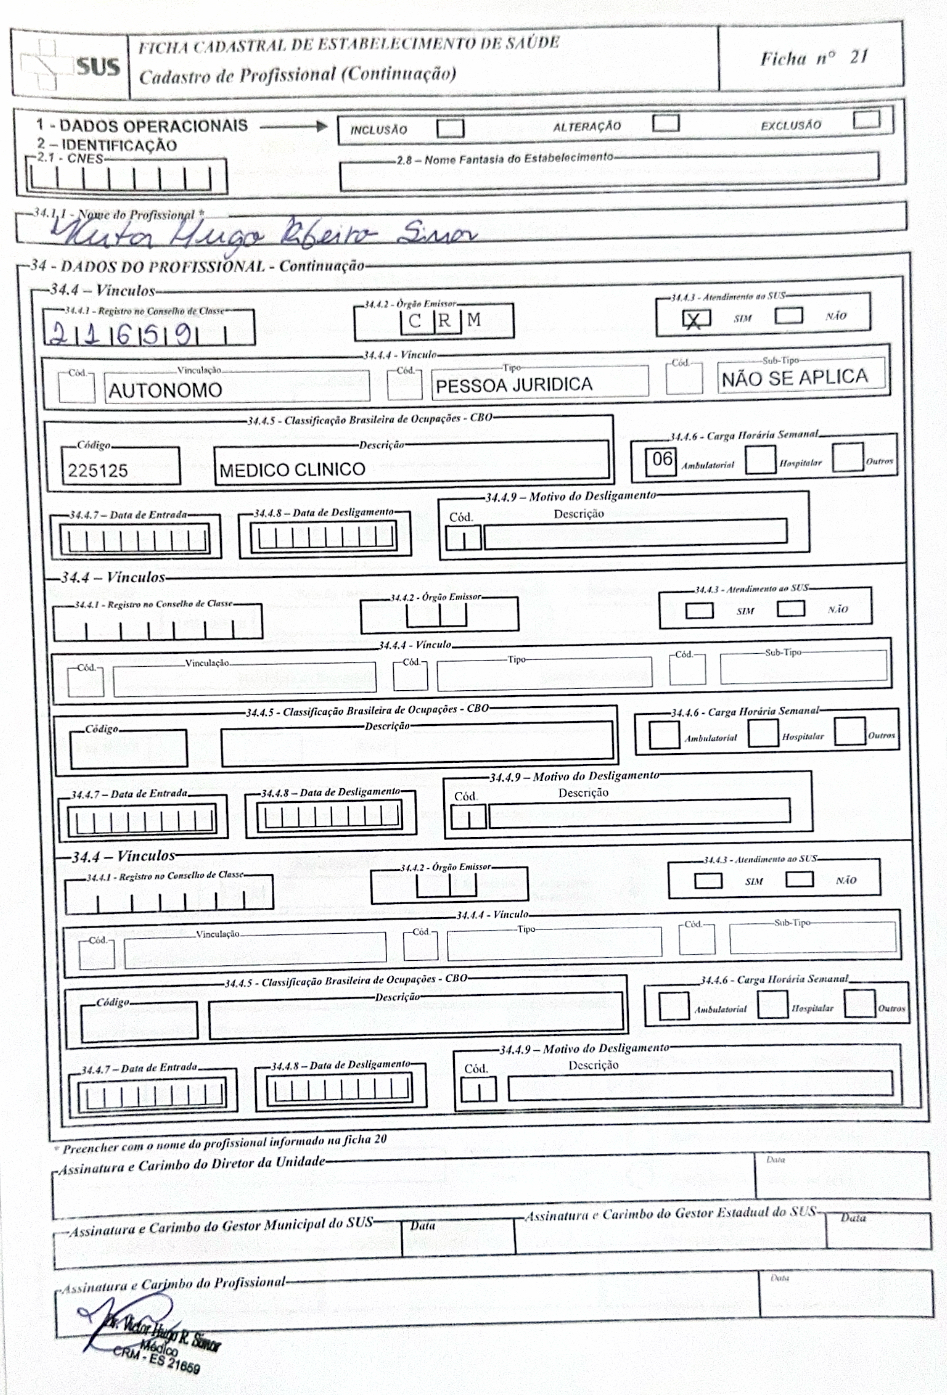 SUS
FICHA CADASTRAL DE ESTABELECIMENTO DE SAÚDE
Cadastro de Profissional (Continuação)
Ficha nº 21
1 - DADOS OPERACIONAIS
INCLUSÃO
ALTERAÇÃO
EXCLUSÃO
2 – IDENTIFICAÇÃO
2.1 - CNES
2.8 – Nome Fantasia do Estabelecimento
34.1.1 - Nome do Profissional *
Victor Hugo Ribeiro Simor
34 - DADOS DO PROFISSIONAL - Continuação
34.4 – Vínculos
34.4.1 - Registro no Conselho de Classe
21659
34.4.2 - Órgão Emissor
C R M
34.4.3 - Atendimento ao SUS
X SIM NÃO
34.4.4 - Vínculo
Cód. Vinculação Cód. Tipo Cód. Sub-Tipo
AUTONOMO PESSOA JURIDICA NÃO SE APLICA
34.4.5 - Classificação Brasileira de Ocupações - CBO
Código Descrição
225125 MEDICO CLINICO
34.4.6 - Carga Horária Semanal
06 Ambulatorial Hospitalar Outros
34.4.7 – Data de Entrada
34.4.8 – Data de Desligamento
34.4.9 – Motivo do Desligamento
Cód. Descrição
34.4 – Vínculos
34.4.1 - Registro no Conselho de Classe
34.4.2 - Órgão Emissor
34.4.3 - Atendimento ao SUS
SIM NÃO
34.4.4 - Vínculo
Cód. Vinculação Cód. Tipo Cód. Sub-Tipo
34.4.5 - Classificação Brasileira de Ocupações - CBO
Código Descrição
34.4.6 - Carga Horária Semanal
Ambulatorial Hospitalar Outros
34.4.7 – Data de Entrada
34.4.8 – Data de Desligamento
34.4.9 – Motivo do Desligamento
Cód. Descrição
34.4 – Vínculos
34.4.1 - Registro no Conselho de Classe
34.4.2 - Órgão Emissor
34.4.3 - Atendimento ao SUS
SIM NÃO
34.4.4 - Vínculo
Cód. Vinculação Cód. Tipo Cód. Sub-Tipo
34.4.5 - Classificação Brasileira de Ocupações - CBO
Código Descrição
34.4.6 - Carga Horária Semanal
Ambulatorial Hospitalar Outros
34.4.7 – Data de Entrada
34.4.8 – Data de Desligamento
34.4.9 – Motivo do Desligamento
Cód. Descrição
* Preencher com o nome do profissional informado na ficha 20
Assinatura e Carimbo do Diretor da Unidade
Data
Assinatura e Carimbo do Gestor Municipal do SUS
Data
Assinatura e Carimbo do Gestor Estadual do SUS
Data
Assinatura e Carimbo do Profissional
Data
Dr. Victor Hugo R. Simor
Médico
CRM - ES 21659